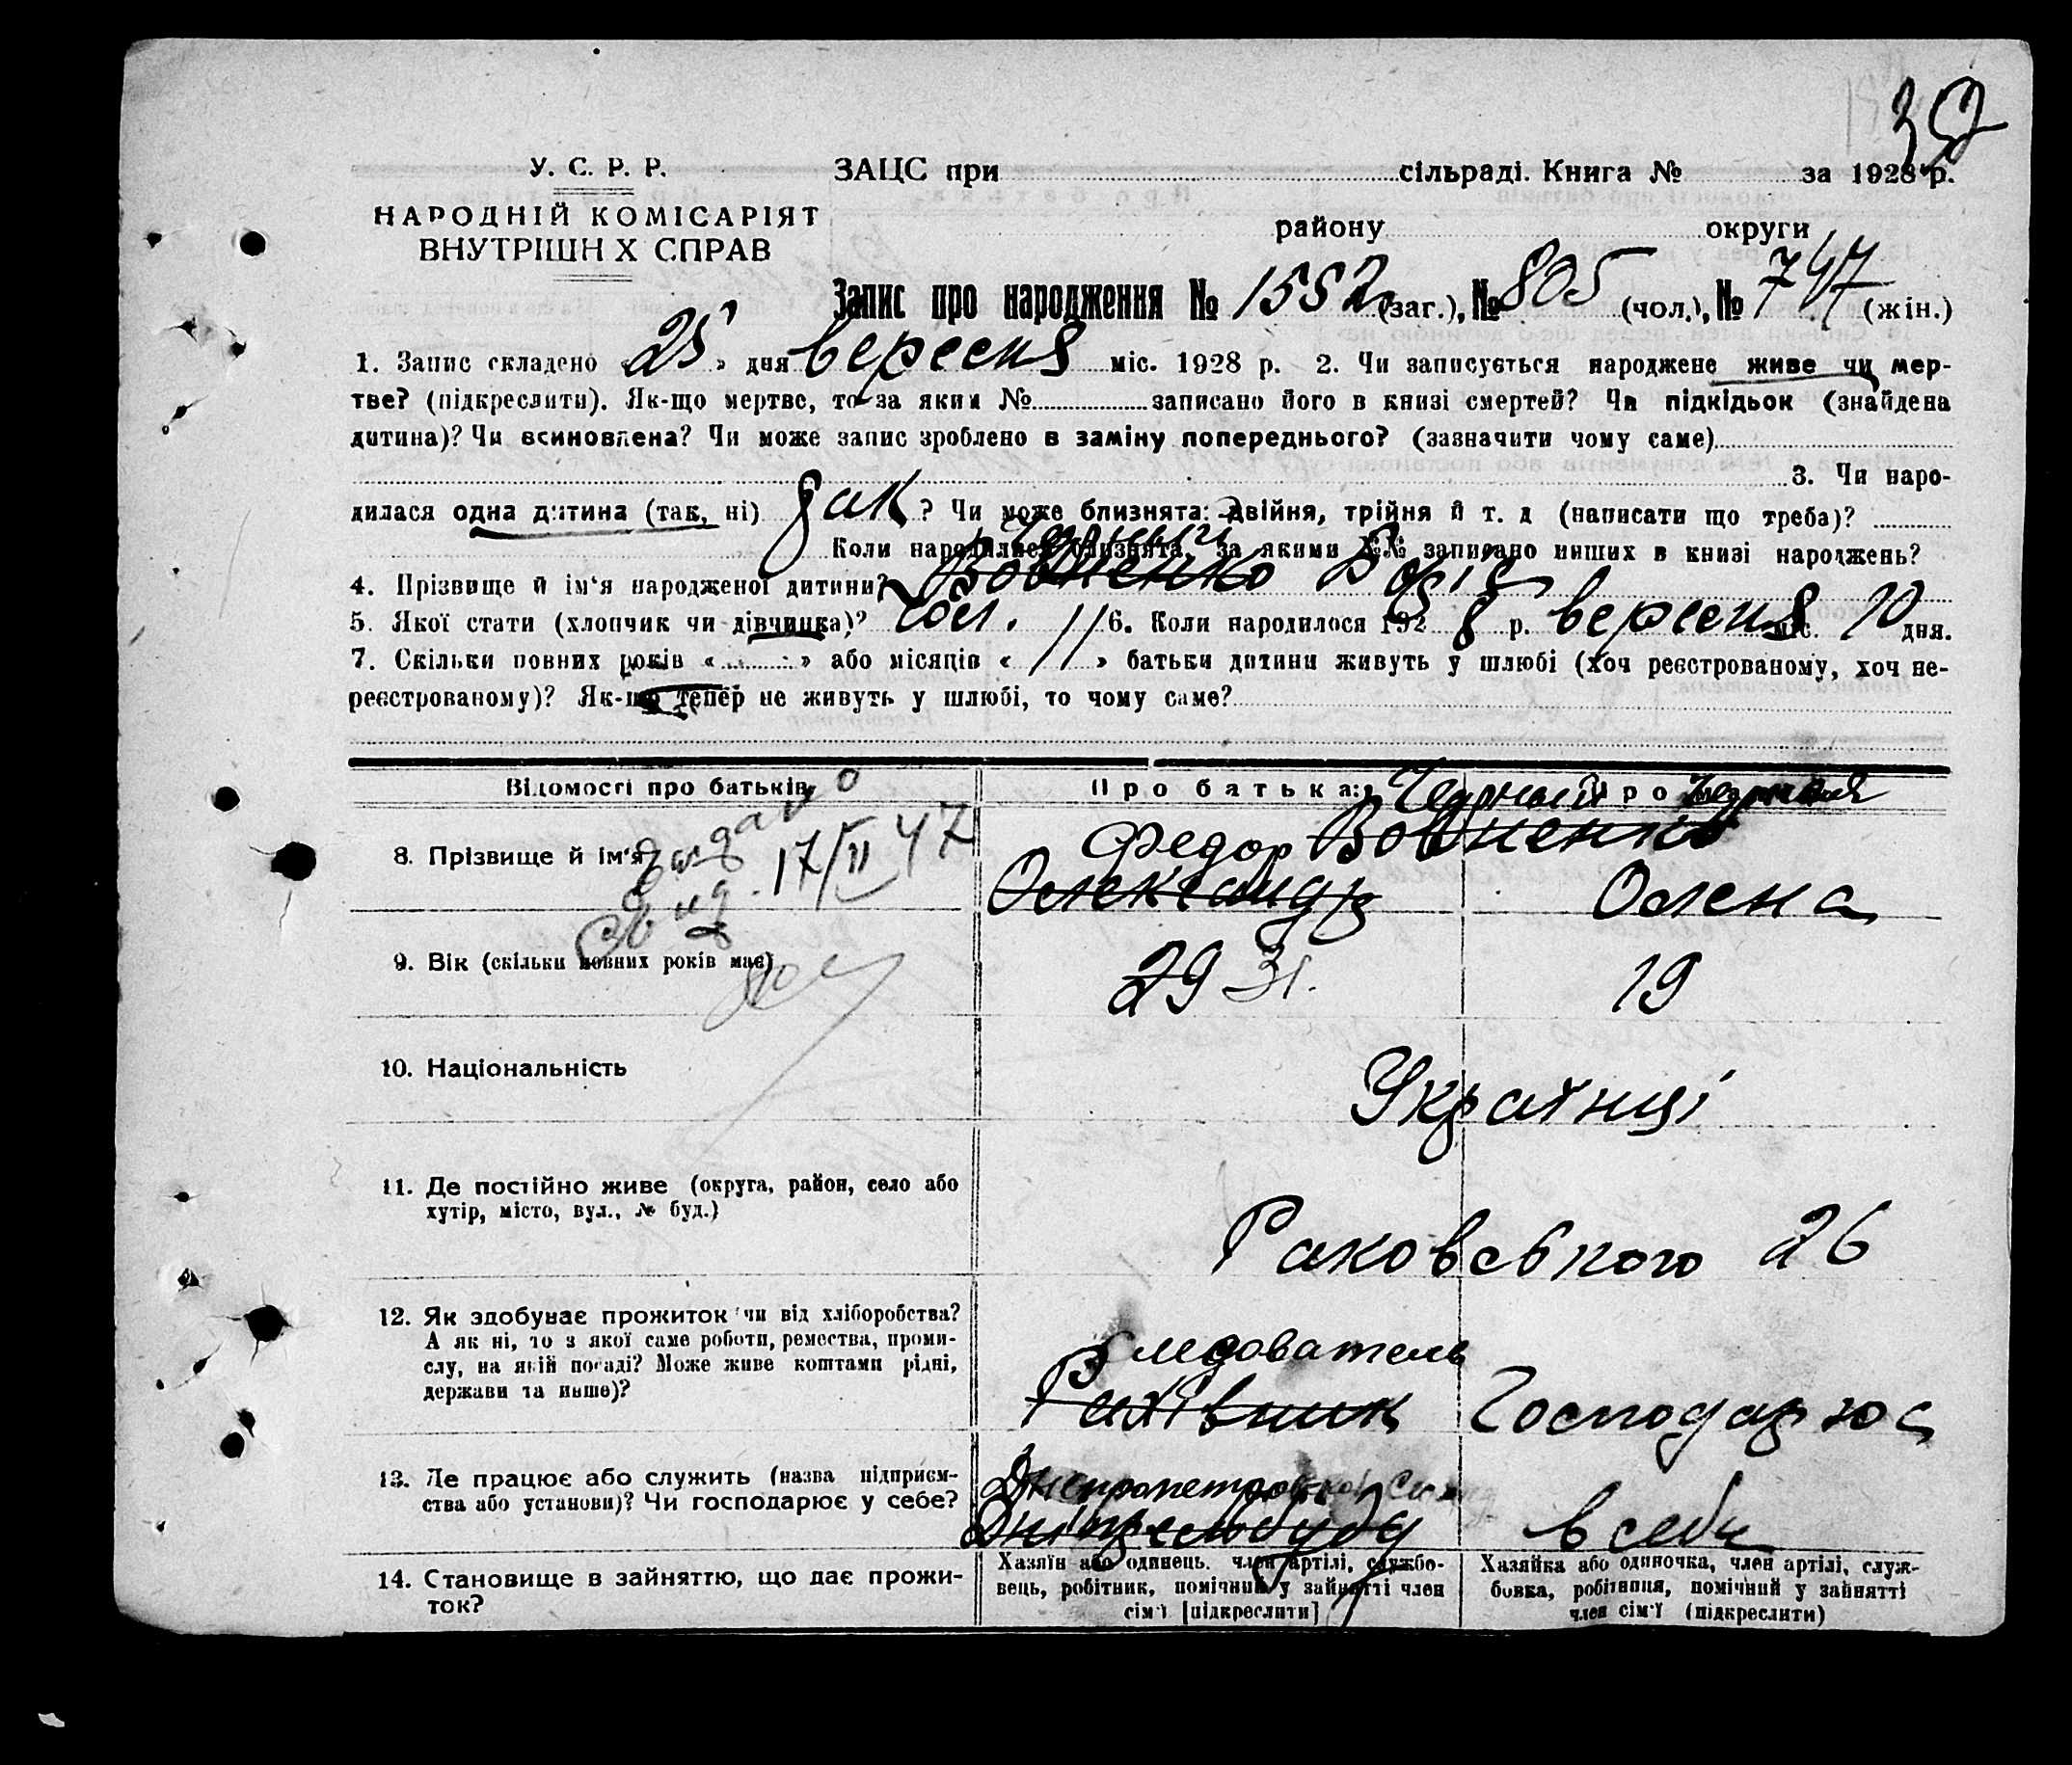 32
У. С. Р. Р.
ЗАЦС при сільраді. Книга № за 1928 р.
НАРОДНІЙ КОМІСАРІЯТ
ВНУТРІШН Х СПРАВ
району округи
Запис про народження № 1552 (заг.), № 805 (чол.), № 747 (жін.)
1. Запис складено «25» дня вересня міс. 1928 р. 2. Чи записується народжене живе чи мер-
тве? (підкреслити). Як-що мертве, то за яким № записано його в книзі смертей? Чи підкідьок (знайдена
дитина)? Чи всиновлена? Чи може запис зроблено в заміну попереднього? (зазначити чому саме)
3. Чи наро-
дилася одна дитина (так, ні) так? Чи може близнята: двійня, трійня й т. д (написати що треба)?
Коли народилися близнята, за якими №№ записано инших в книзі народжень?
4. Прізвище й ім‘я народженої дитини? Вовненко
5. Якої стати (хлопчик чи дівчинка)? чол. 6. Коли народилося 1928 р. вересня міс. 10 дня.
7. Скільки повних років « » або місяців « 11 » батьки дитини живуть у шлюбі (хоч реєстрованому, хоч не-
реєстрованому)? Як-що тепер не живуть у шлюбі, то чому саме?
Відомості про батьків Про батька: Черный Про Черная
8. Прізвище й ім‘я Федор Вовненко
Олександр Олена
17/II 47
9. Вік (скільки повних років має) 29 31. 19
10. Національність Українці
11. Де постійно живе (округа, район, село або
хутір, місто, вул., № буд.)
Раковського 26
12. Як здобуває прожиток чи від хліборобства?
А як ні, то з якої саме роботи, ремества, проми-
слу, на якій посаді? Може живе коштами рідні,
держави та инше)?
Следователь
Рахівник Господарює
13. Де працює або служить (назва підприєм-
ства або установи)? Чи господарює у себе?
Днепропетровской
в себе
14. Становище в зайняттю, що дає прожи-
ток?
Хазяїн або одинець, член артілі, службо-
вець, робітник, помічник у зайнятті член
сім‘ї [підкреслити]
Хазяйка або одиночка, член артілі, служ-
бовка, робітниця, помічний у зайнятті
член сім‘ї (підкреслити)